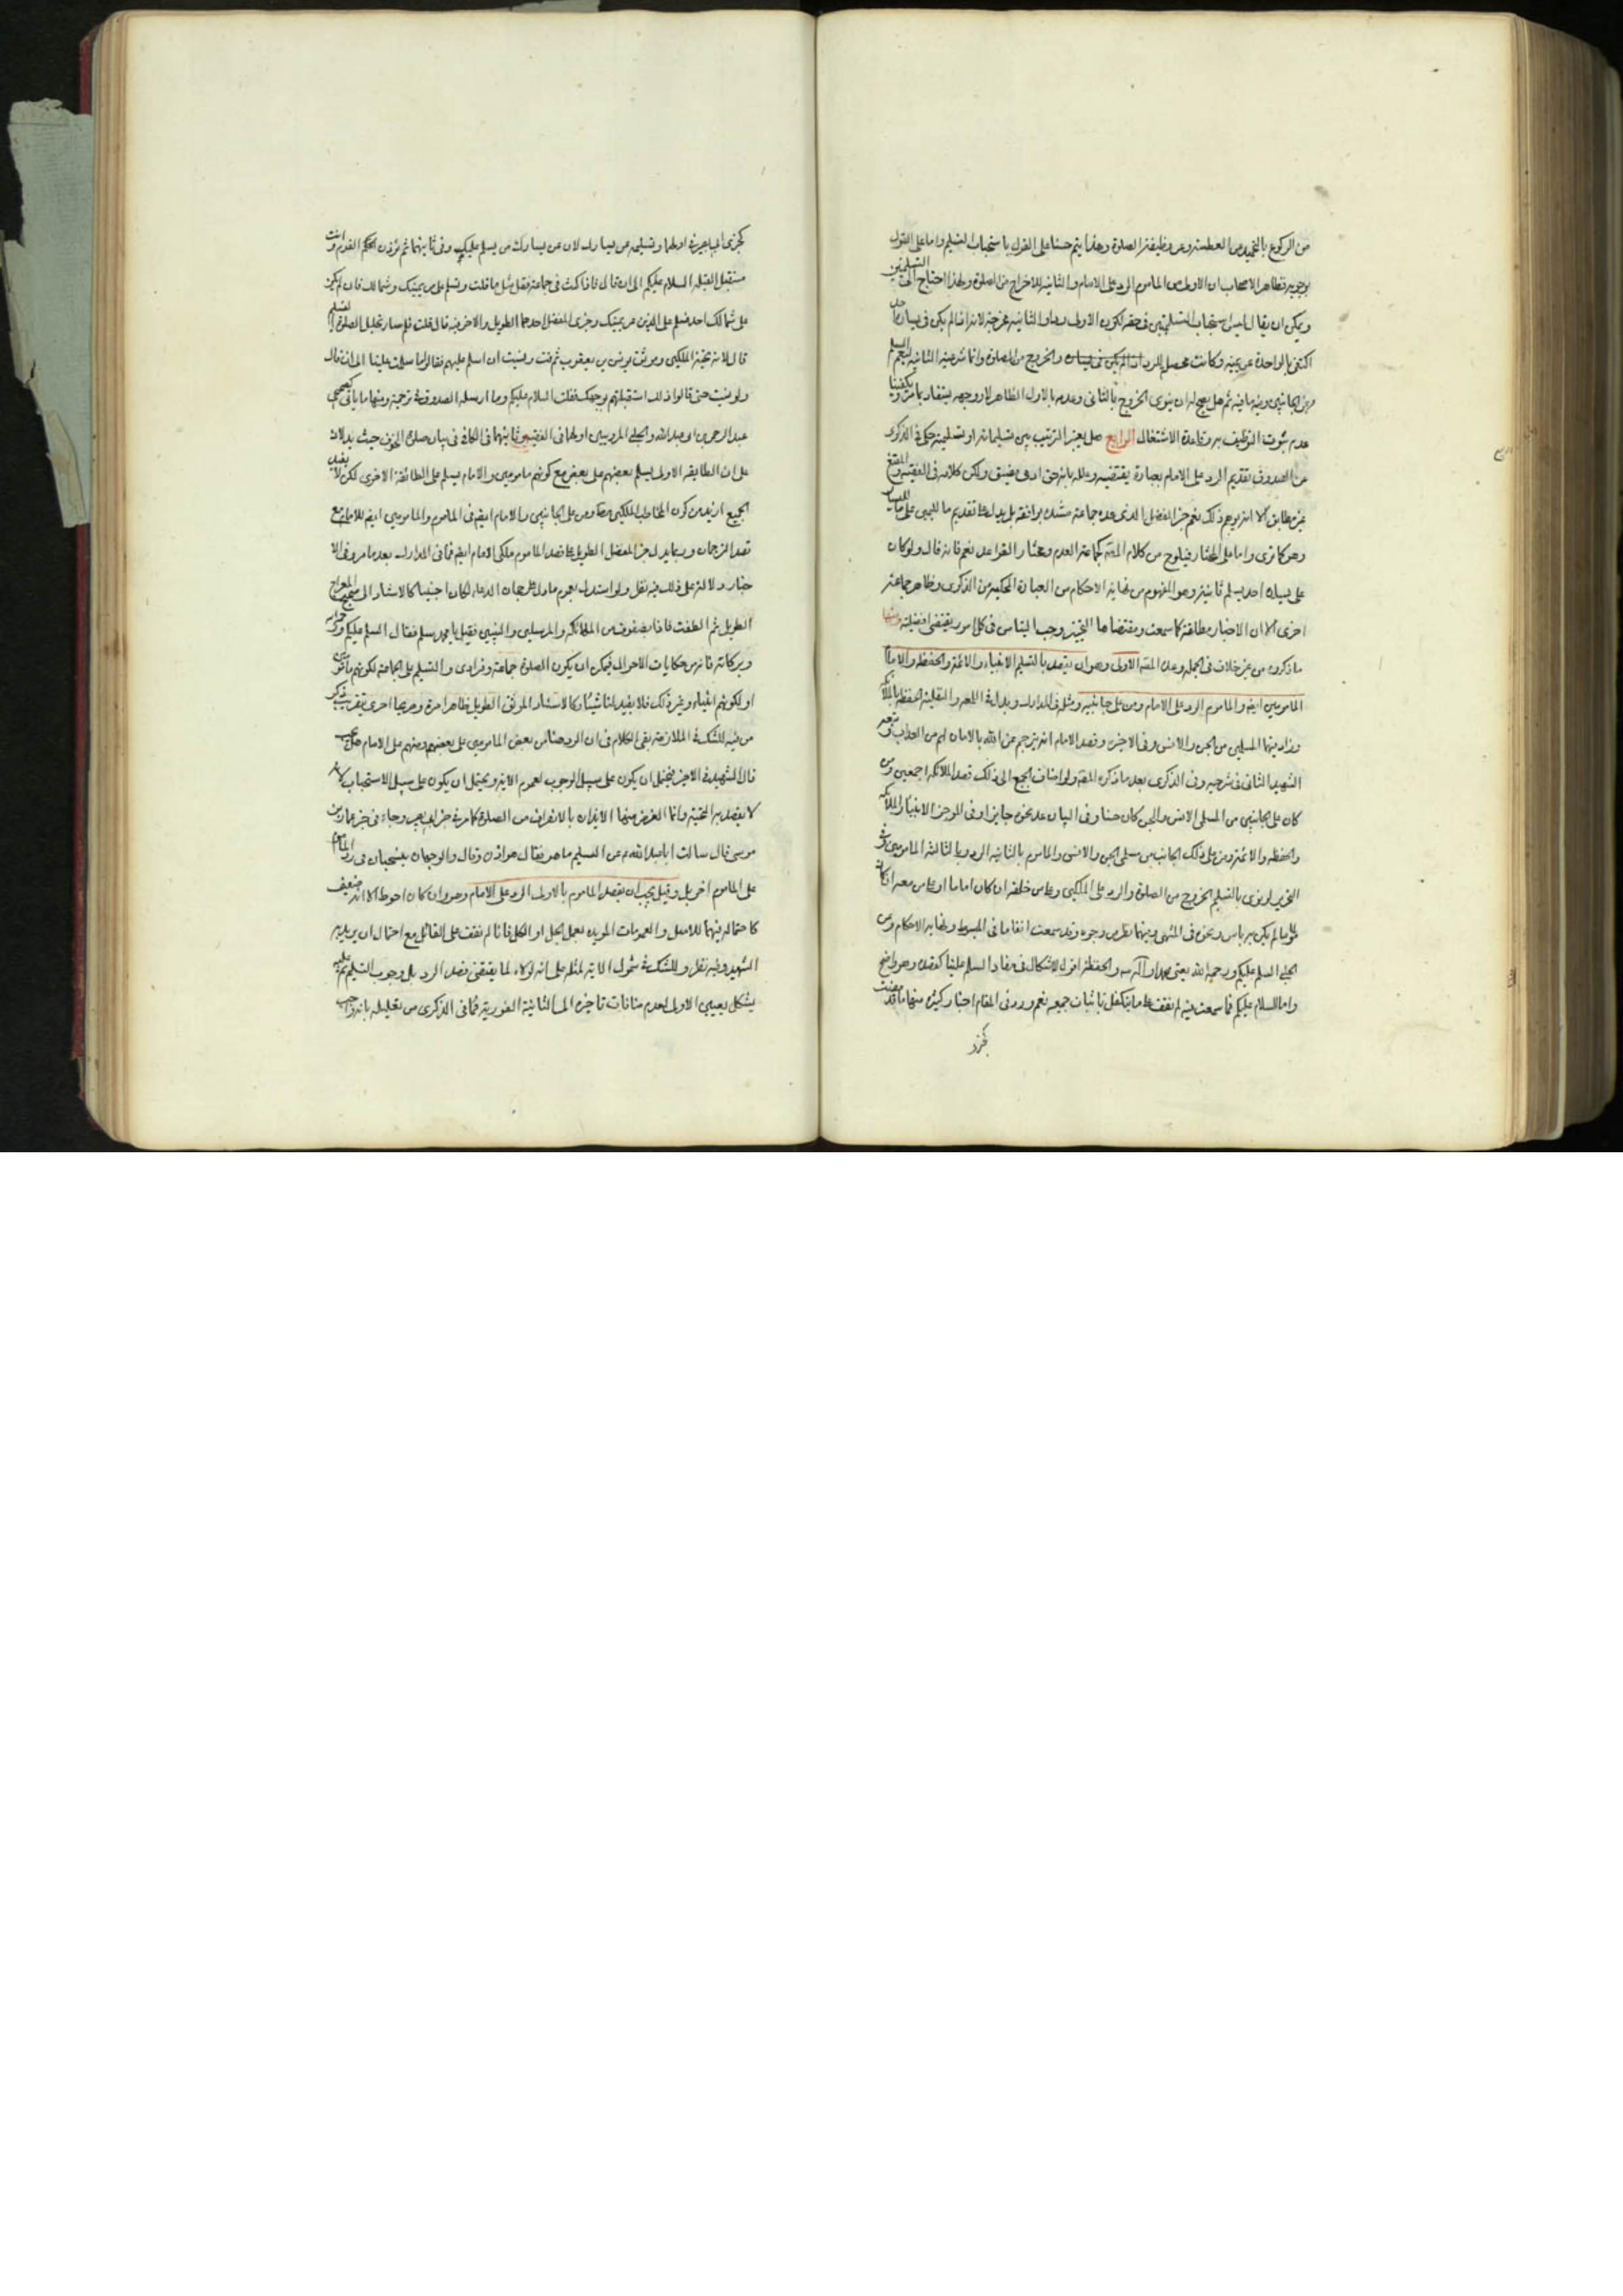 من الركوع بالتحميد من العطسة وعن وظيفة الصلوة وهذا يتم حسنا على القول باستحباب التسليم واما على القول
بوجوبه فظاهر الاصحاب ان الاولى من الماموم للرد على الامام والثانية للاخراج من الصلوة ولهذا احتاج الى التسليمتين
ويمكن ان يقال ليس استحباب التسليمتين في حقه لكون الاولى ردا والثانية مخرجة لانه اذا لم يكن في يساره احد
اكتفى بالواحدة عن يمينه وكانت محصلة للرد والخروج من الصلوة وانما شرعية الثانية ليعم السلام
من الجانبين وفيه ما فيه ثم هل يجوز له ان ينوى الخروج بالثاني وعدمه بالاول الظاهر لا ووجهه يستفاد بما مر ويكفينا
عدم ثبوت التوظيف به وقاعدة الاشتغال الرابع هل يعتبر الترتيب بين تسليماته او تسليمتيه حكى في الذكرى
عن الصدوق تقديم الرد على الامام بعبارة يقتضيه وعلله بانه حتى ادى مضيق ولكن كلامه في الفقيه والمقنع
غير مطابق الا انه يوهم ذلك نعم خبر المفضل الذي عده جماعة مستنده يوافقه بل يدل على تقديم ما لليمين على ما لليسار
وهو كما ترى واما على المختار فيلوح من كلام المص كجماعة العدم ومختار القواعد نعم فانه قال ولو كان
على يساره احد يسلم ثانية وهو المفهوم من نهاية الاحكام من العبارة المحكية من الذكرى وظاهر جماعة
اخرى الا ان الاخبار مطلقة كما سمعت ومقتضاها التخيير وجب اليناس في كل امر يقتضي افضيلته ومنها
ما ذكروه من غير خلاف في الجملة وعده المص الاولى وهو ان يقصد بالتسليم الانبياء والائمة والحفظة والامام
المامومين ايضا والماموم الرد على الامام ومن على جانبيه ومثله في المدارك وبداية اللمعة والنفلية الحفظة بالملائكة
وزاد فيهما المسلمين من الجن والانس وفي الاخيرة وقصد الامام انه يترجم عن الله بالامان لهم من العذاب وتبعه
الشهيد الثاني في شرحيه وفي الذكرى بعد ما ذكره المص ولو اضاف الجمع الى ذلك قصد الملائكة اجمعين ومن
كان على الجانبين من المسلمي الانس والجن كان حسنا وفي البيان عد نحوه جايزا وفي الموجز الانبياء والملائكة
والحفظة والائمة ومن على ذلك الجانب من مسلمي الجن والانس والماموم بالثانية الرد وبالثالثة المامومين وفي
التحرير لو نوى بالتسليم الخروج من الصلوة والرد على الملكين وعلى من خلفه ان كان اماما او على من معه ان كان
ماموما لم يكن به باس ونحوه في المنتهى وفيهما نظر من وجوه وقد سمعت انفا ما في المبسوط ونهاية الاحكام وعن
الحلبي السلم عليكم ورحمة الله يعني محمدا وآله ص والحفظة اقول لا اشكال في مفاد السلم علينا كقصده وهو واضح
واما السلام عليكم فما سمعت فيه لم نقف على ما يتكفل باثبات جميعه نعم ورد في المقام اخبار كثيرة منها ما قد مضت
كخبر
كخبرى ابي بصير في اولهما وتسليمة عن يسارك لان عن يسارك من يسلم عليك وفي ثانيهما ثم تؤذن الحكم القوم وانت
مستقبل القبلة السلام عليكم الى ان قال فاذا كنت في جماعة فقل مثل ما قلت وتسلم على من يمينك وشمالك فان لم يكن
على شمالك احد فسلم على الذين عن يمينك وخبرى المفضل احدهما الطويل والاخر فيه قال قلت فلم صار تحليل الصلوة التسليم
قال لانه تحية الملكين وموثق يونس بن يعقوب ثم قمت ونسيت ان اسلم عليهم فقالوا ما سلمت علينا الى ان قال
ولو نسيت حتى قالوا ذلك استقبلتهم بوجهك فقلت السلام عليكم وما ارسله الصدوق في ترجمته ومنها ما ياتي كصحيحي
عبد الرحمن بن ابي عبد الله والحلبي المرويين اولهما في الفقيه وثانيهما في الكافي في بيان صلوة الخوف حيث يدلان
على ان الطايفة الاولى يسلم بعضهم على بعض مع كونهم مامومين والامام يسلم على الطائفة الاخرى لكن لا يفيد
الجميع ازيد من كون المخاطب الملكين معا ومن على الجانبين والامام ايضا في الماموم والمامومين ايضا للامام مع
قصد الترجمان وربما يدل خبر المفضل الطويل على قصد الماموم ملكي الامام ايضا فما في المدارك بعد ما مر وفي الا
خبار دلالة على ذلك فيه نظر ولو استدل بعموم ما دل على رجحان الدعاء لكان اجنبيا كالاستناد الى صحيح المعراج
الطويل ثم التفت فاذا بصفوف من الملائكة والمرسلين والنبيين فقيل يا محمد سلم فقال السلم عليكم ورحمة الله
وبركاته فانه من حكايات الاحوال فيمكن ان يكون الصلوة جماعة وفرادى والتسليم على الجماعة لكونهم مامومين
او لكونهم انبياء وغير ذلك فلا يفيد لنا شيئا كالاستناد الموثق الطويل ظاهرا مرة وصريحا اخرى بتقريب ذكر
من فيه للشك في الملازمة بقي الكلام في ان الرد هنا من بعض المامومين على بعضهم ومنهم على الامام هل يجب
قال الشهيد في الاخير يحتمل ان يكون على سبيل الوجوب لعموم الاية ويحتمل ان يكون على سبيل الاستحباب لانه
لا يقصد به التحية وانما الغرض منها الايذان بالانصراف من الصلوة كما مر في خبر ابي بصير وجاء في خبر عمار بن
موسى قال سالت ابا عبد الله عن التسليم ما هو فقال هو اذن وقال والوجهان ينسحبان في رد الماموم
على الماموم اخر بل وقيل يجب ان يقصد الماموم بالاولى الرد على الامام وهو وان كان احوط الا انه ضعيف
كاحتماله فيهما للاصل والعمومات المؤيدة بعمل الجل او الكل فانا لم نقف على القائل مع احتمال ان يريد به
الشهيد وفيه نظر وللشك في شمول الاية لمثله على انه لو كان لما يقتضي قصد الرد بل وجوب التسليم عليه ثم
يشكل تعيين الاولى لعدم منافات تاخيره الى الثانية الفورية فما في الذكرى من تعليله بانه واجب